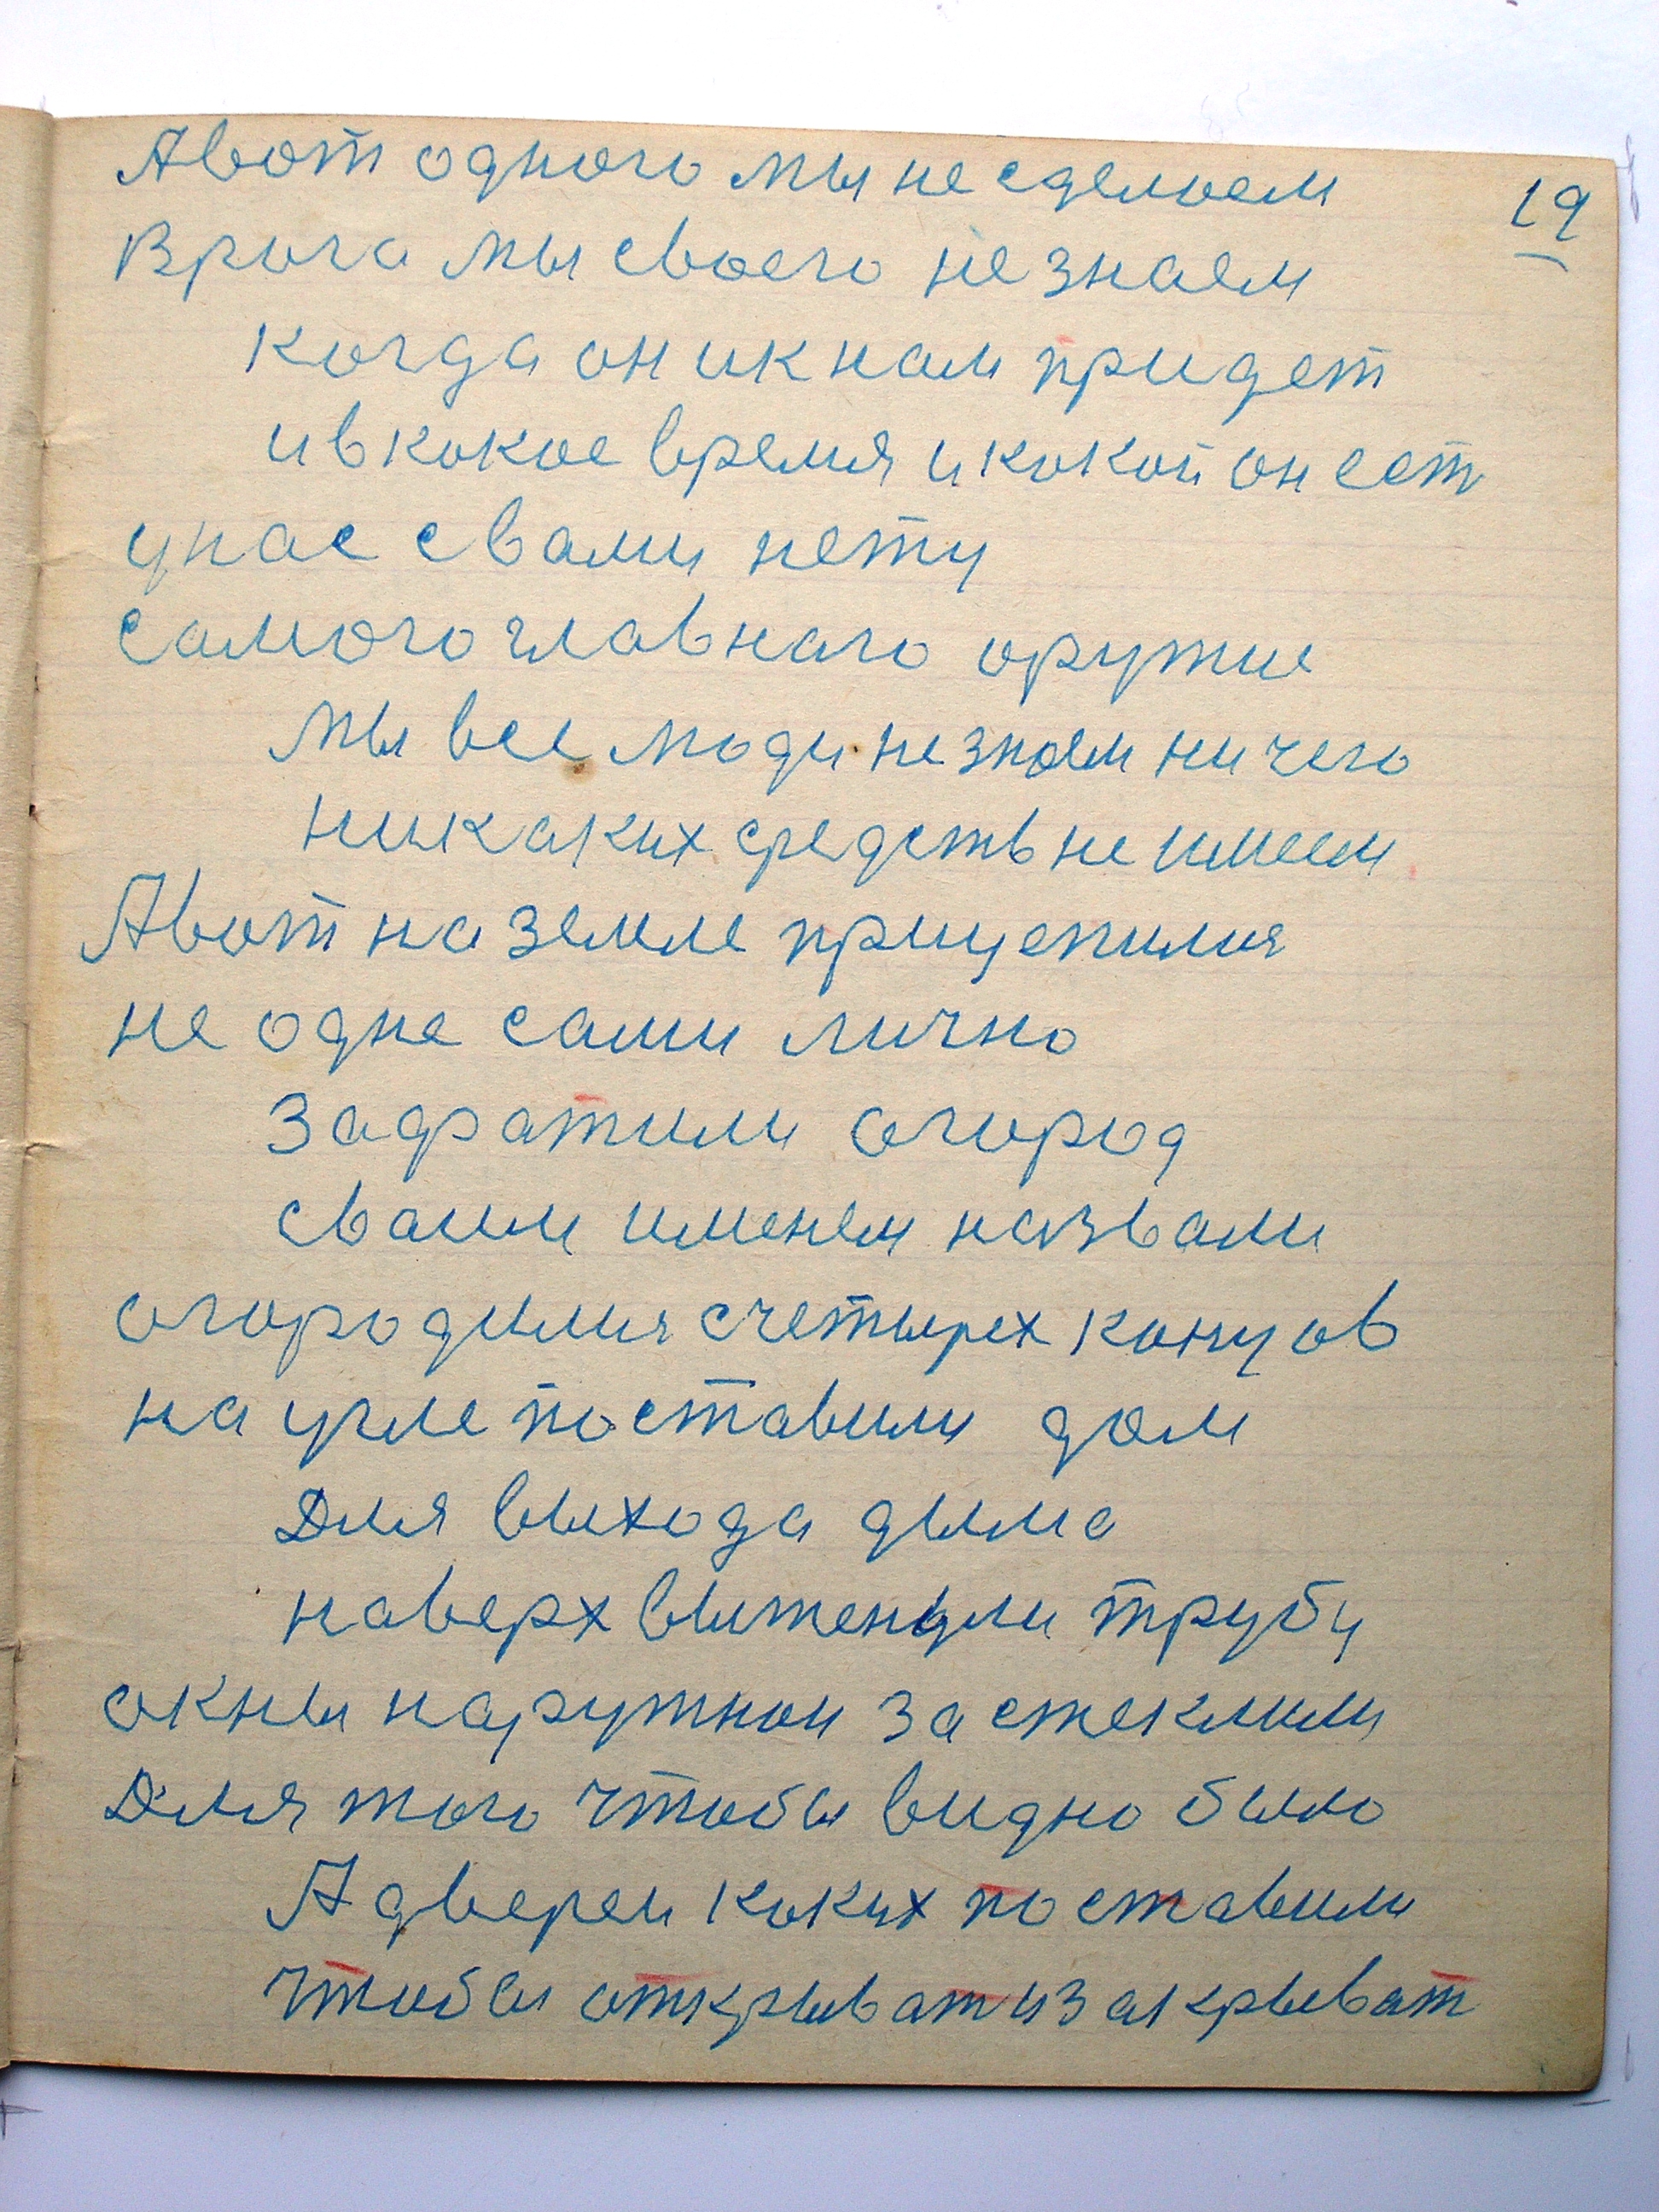 Авот одного мы не сделоем
19
Врога мы своего не знаем
когда он ик нам придет
ив кокое время и кокой он ест
унас свами нету
самого главнаго оружие
мы все люди не знаем ни чего
никаких средств не имеем
Авот на земле прицепилися
не одне сами лично
Зафатили огород
сваим именем назвали
огородилися счетырех концов
на угле поставили дом
Для выхода дыма
наверх выженули трубу
окны наружнои застеклили
Для того чтобы видно было
А дверей коких поставили
чтобы открыват изакрыват